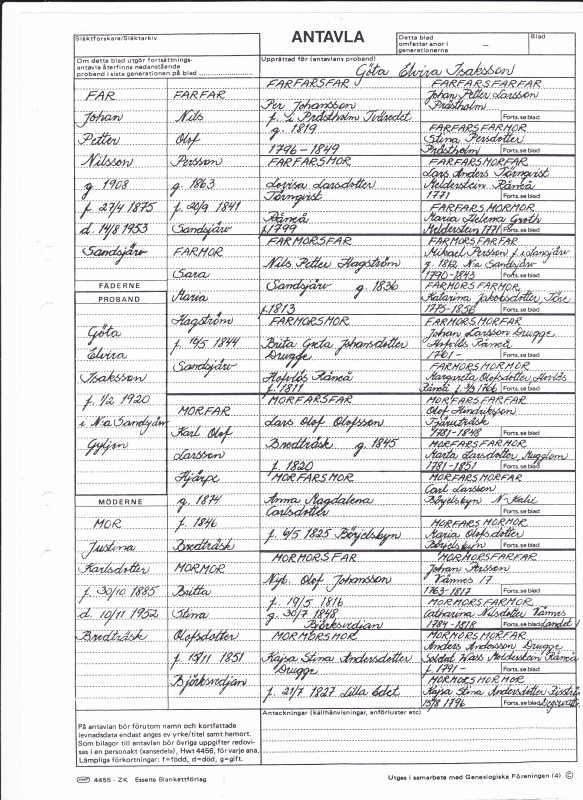 Släktforskare/Släktarkiv
ANTAVLA
Detta blad
omfattar anor i
generationerna
–
Blad
Om detta blad utgör fortsättnings-
antavla återfinns nedanstående
proband i sista generationen på blad
Upprättad för (antavlans proband)
Göta Elvira Isaksson
FAR
Johan
Petter
Nilsson
g. 1908
f. 27/4 1875
d. 14/8 1953
Sandsjärv
FÄDERNE
PROBAND
Göta
Elvira
Isaksson
f. 1/2 1920
i N:a Sandsjärv
Gyljen
MÖDERNE
MOR
Justina
Karlsdotter
f. 30/10 1885
d. 10/11 1952
Bredträsk
FARFAR
Nils
Olof
Persson
g. 1863
f. 20/9 1841
Sandsjärv
FARMOR
Sara
Maria
Hagström
f. 14/5 1844
Sandsjärv
MORFAR
Karl Olof
Larsson
Hjärpe
g. 1874
f. 1846
Bredträsk
MORMOR
Britta
Stina
Olofsdotter
f. 1851
Björkvedjan
FARFARSFAR
Per Johansson
f. i Prästholm Tväredet
g. 1819
1796-1849
FARFARSMOR
Lovisa Larsdotter
Törnqvist
Råneå
f. 1799
FARMORSFAR
Nils Petter Hagström
Sandsjärv g. 1836
f. 1813
FARMORSMOR
Brita Greta Johansdotter
Drugge
Högsölös Råneå
f. 1811
MORFARSFAR
Lars Olof Olofsson
Bredträsk g. 1845
f. 1820
MORFARSMOR
Anna Magdalena
Carlsdotter
f. 6/5 1825 Börjelsbyn
MORMORSFAR
Nyb. Olof Johansson
f. 19/5 1816
g. 30/7 1848
Björkvedjan
MORMORSMOR
Kajsa Stina Andersdotter
Drugge
f. 21/7 1827 Lilla
FARFARSFARFAR
Johan Petter Larsson
Prästholm
Forts. se blad
FARFARSFARMOR
Stina Persdotter
Prästholm
Forts. se blad
FARFARSMORFAR
Lars Anders Törnqvist
Melderstein Råneå
1771
Forts. se blad
FARFARSMORMOR
Maria Helena Groth
Melderstein 1771
Forts. se blad
FARMORSFARFAR
Mikael Persson f. i Lansjärv
g. 1812 N:a Sandsjärv
1790-1843
Forts. se blad
FARMORSFARMOR
Katarina Jakobsdotter, Töre
1775-1856
Forts. se blad
FARMORSMORFAR
Johan Larsson Drugge
Råneå
1761-
Forts. se blad
FARMORSMORMOR
Margareta Olofsdotter,
Råneå f. 1766
Forts. se blad
MORFARSFARFAR
Olof Hindriksson
Tjäruträsk
1781-1848
Forts. se blad
MORFARSFARMOR
Marta Larsdotter,
1781-1851
Forts. se blad
MORFARSMORFAR
Carl Larsson
Börjelsbyn N-Kalix
Forts. se blad
MORFARSMORMOR
Maria Olofsdotter
Börjelsbyn
Forts. se blad
MORMORSFARFAR
Johan Persson
Vännes 17
1763-1817
Forts. se blad
MORMORSFARMOR
Catharina Nilsdotter Vännes
1784-1818
Forts. se blad
MORMORSMORFAR
Anders Andersson Drugge
Soldat Wass Melderstein Råneå
f. 1791-
Forts. se blad
MORMORSMORMOR
Kajsa Stina Andersdotter
15/8 1796
Forts. se blad
På antavlan bör förutom namn och kortfattade
levnadsdata endast anges ev yrke/titel samt hemort.
Som bilagor till antavlan bör övriga uppgifter redovi-
ses i en personakt (sansedels), Hwt 4456, för varje ana.
Lämpliga förkortningar: f=född, d=död, g=gift.
Anteckningar (källhänvisningar, anförluster etc)
4455 - ZK Esselte Blankettförlag
Utges i samarbete med Genealogiska Föreningen (4) ©